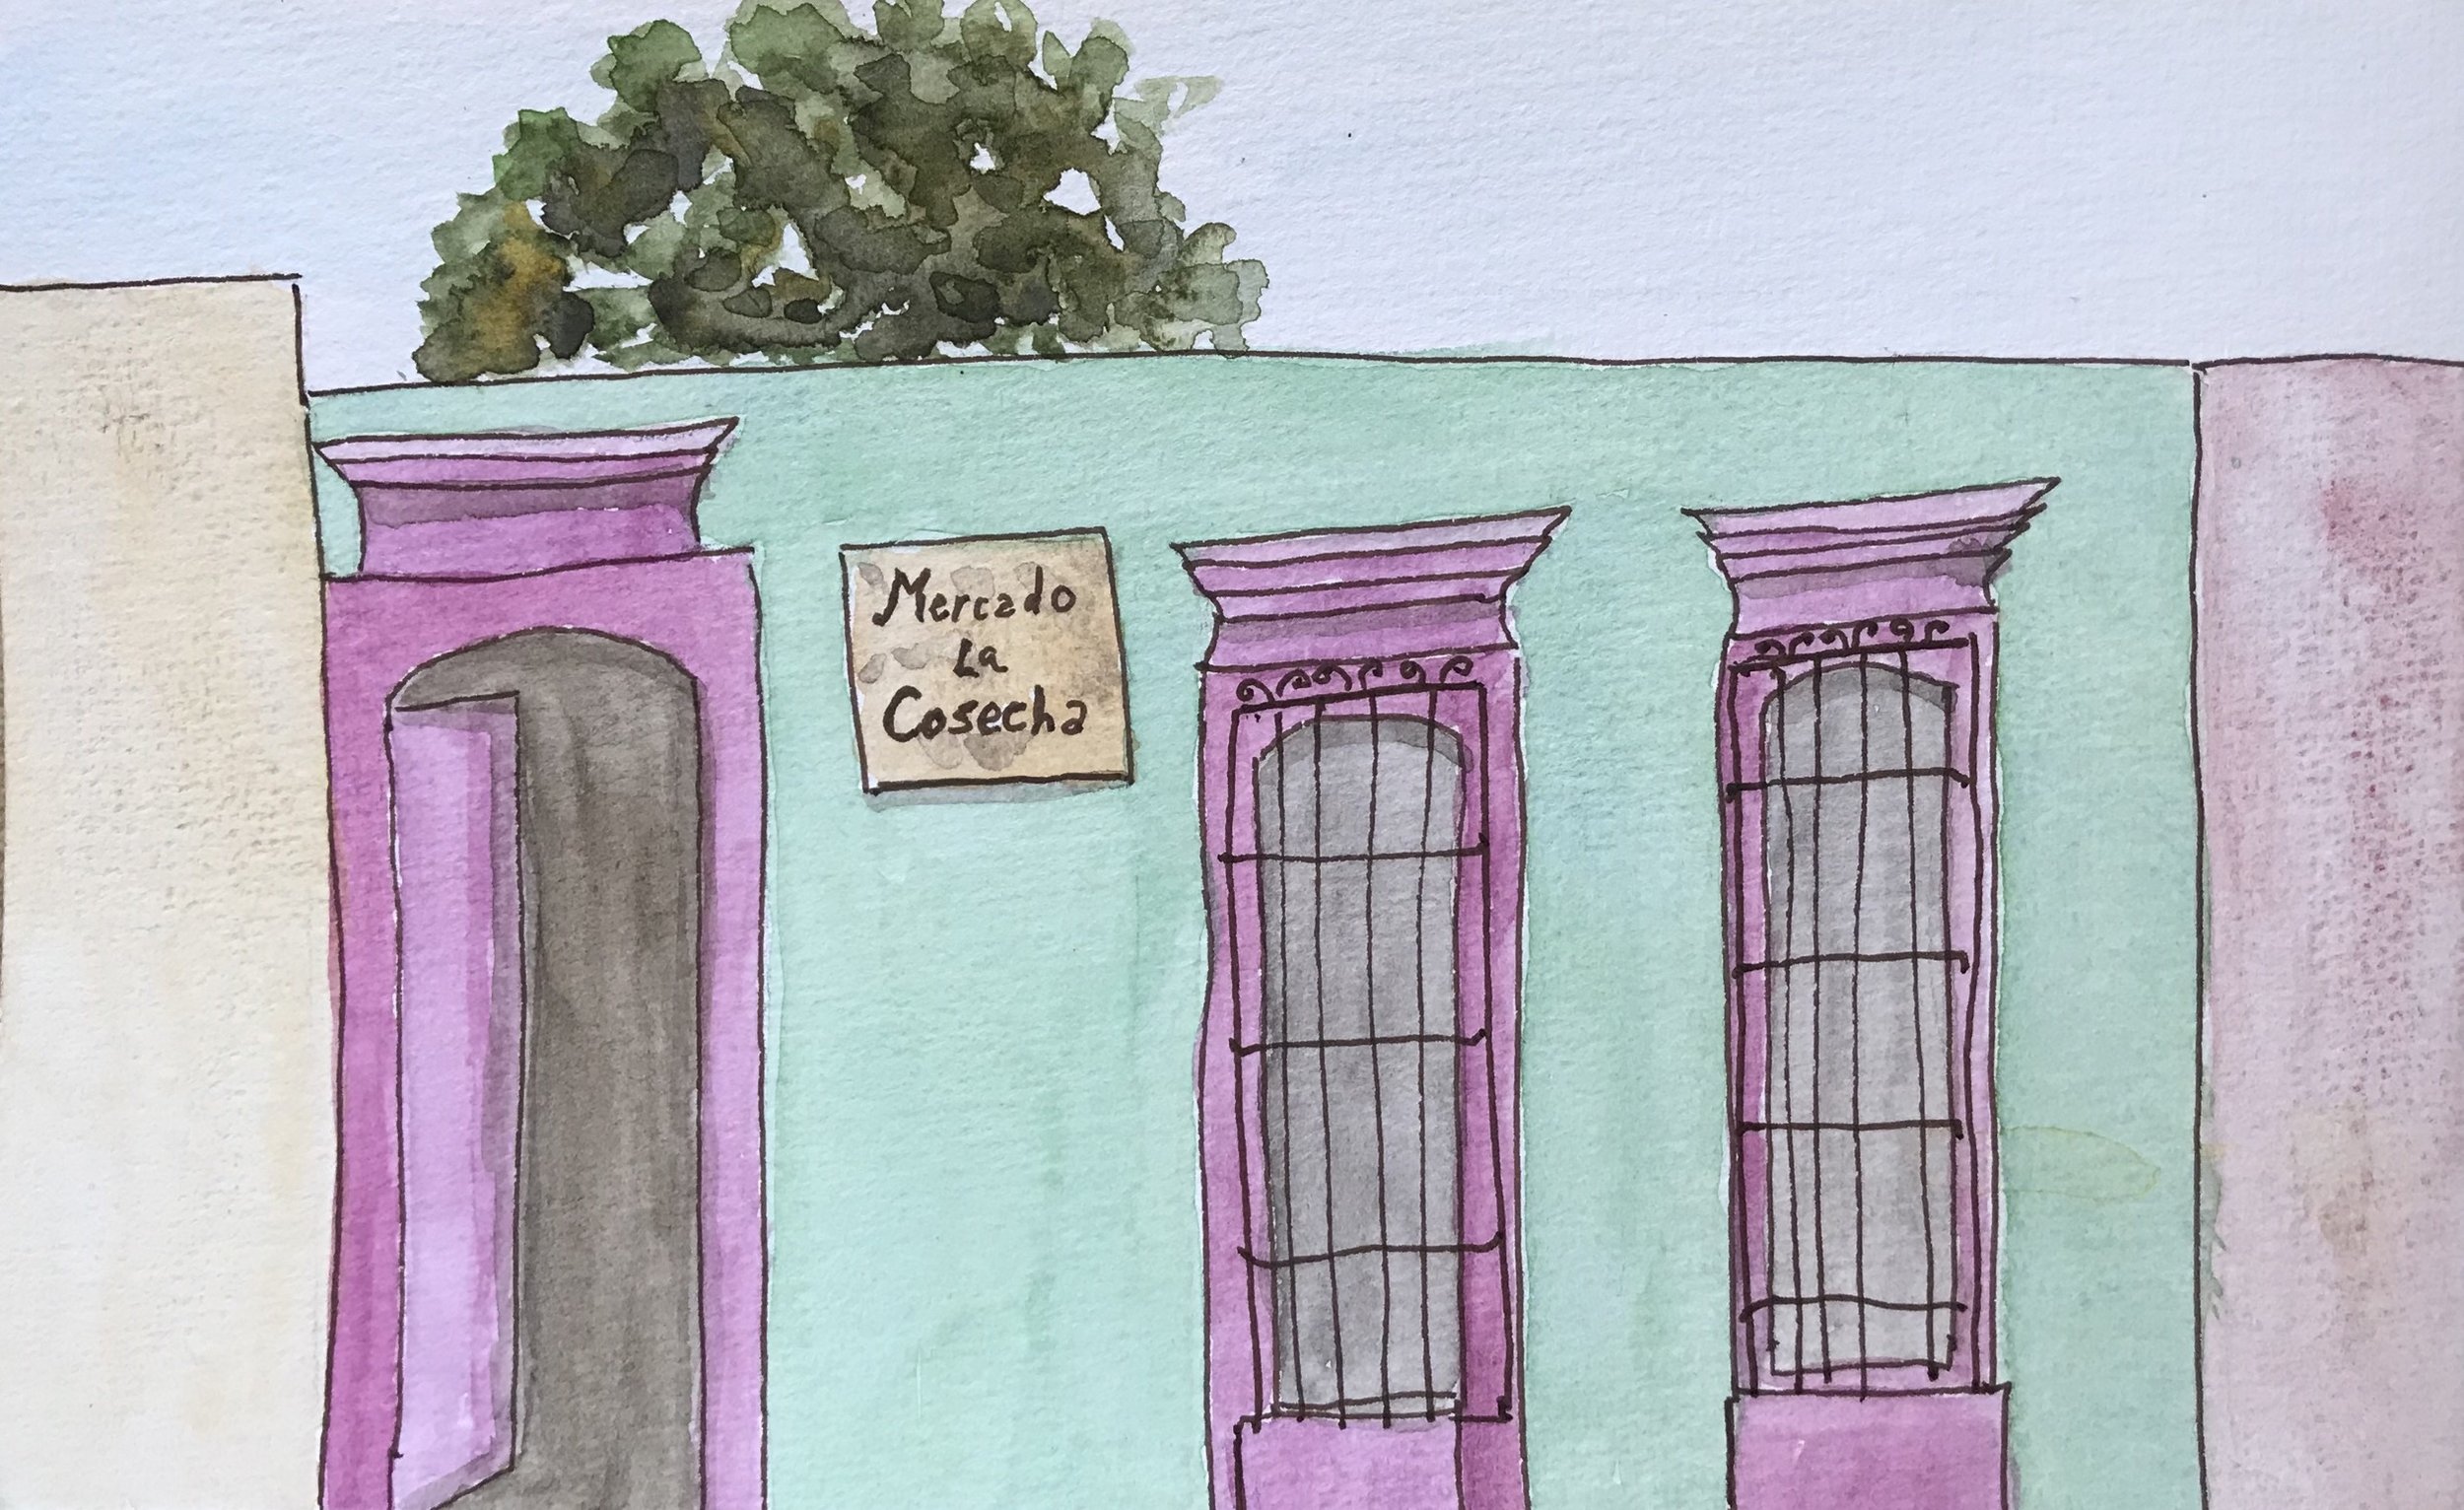 Mercado
La
Cosecha